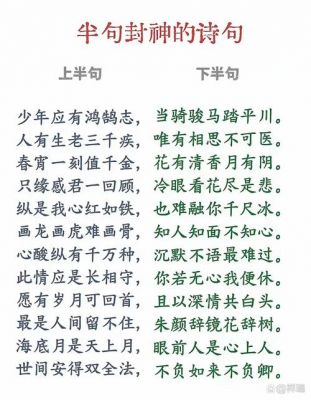 半句封神的诗句
上半句 下半句
少年应有鸿鹄志，当骑骏马踏平川。
人有生老三千疾，唯有相思不可医。
春宵一刻值千金，花有清香月有阴。
只缘感君一回顾，冷眼看花尽是悲。
纵是我心红如铁，也难融你千尺冰。
画龙画虎难画骨，知人知面不知心。
心酸纵有千万种，沉默不语最难过。
此情应是长相守，你若无心我便休。
愿有岁月可回首，且以深情共白头。
最是人间留不住，朱颜辞镜花辞树。
海底月是天上月，眼前人是心上人。
世间安得双全法，不负如来不负卿。